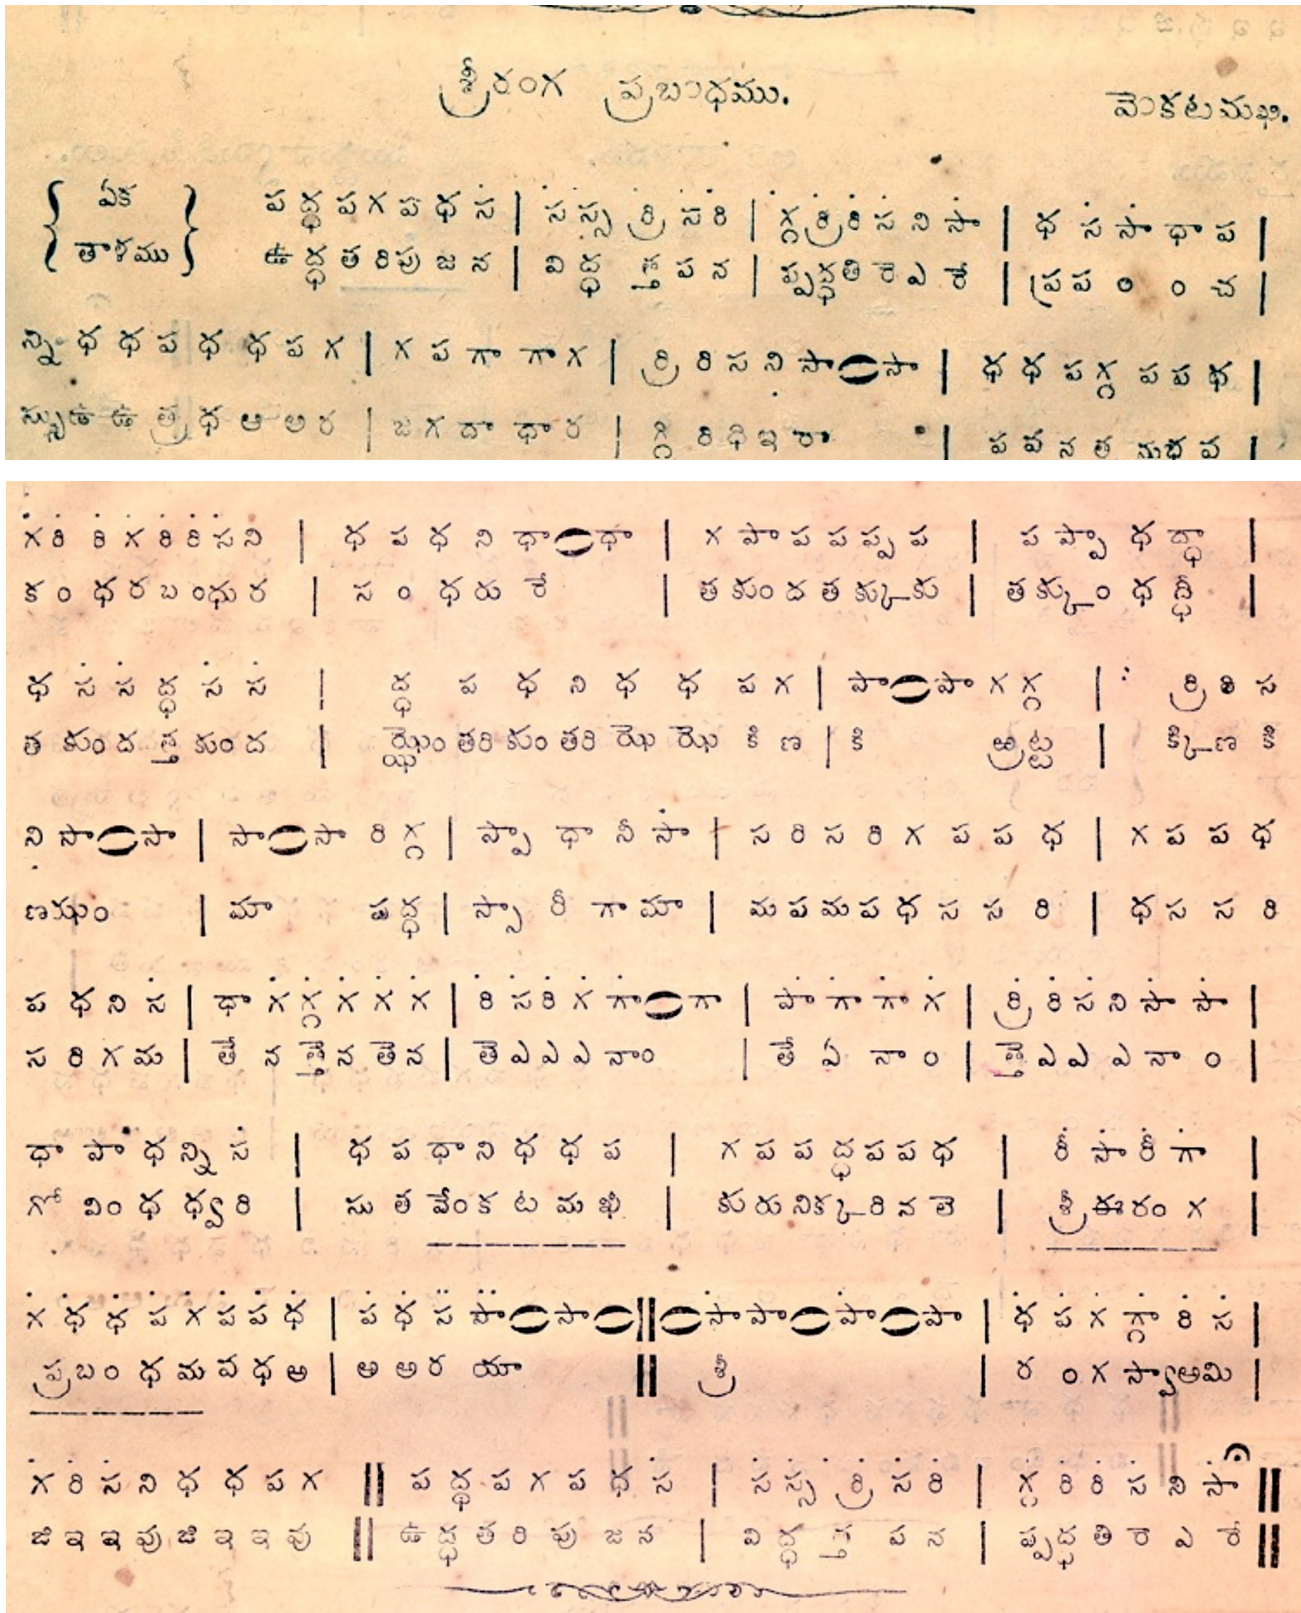 శ్రీరంగ ప్రబంధము.
వెంకటమఖి.
{ ఏక } ప ద్ధ ప గ ప ధ స | స స్స ర్రి స రి | గ్గ ర్రి రి స ని సా | ధ స సా ధా ప |
{ తాళము } ఉ ద్ధ త రి పు జ న | వి ద్ధ త్త ప న | ప్ప ద్ధ తి రె ఎ రే | ప్ర ప ం ం చ |
న్ని ధ ధ ప ధ ధ ప గ | గ ప గా గా గ | ర్రి రి స ని సా సా | ధ ధ ప గ్గ ప ప ధ |
స్సు ఉ ఉ త్ర ధ ఆ అ ర | జ గ దా ధా ర | గ్గి రి ధి ఇ రా | ప వ న త
గ రి రి గ రి రి స ని | ధ ప ధ ని ధా ధా | గ పా ప ప ప్ప ప | ప ప్పా ధ ద్ధా |
క ం ధ ర బ ంధు ర | స ం ధ రు రే | త కుం ద త క్కు కు | త క్కుం ధ ద్ధి |
ధ స స ద్ధ స స | ద్ధ ప ధ ని ధ ధ ప గ | పా పా గ గ్గ | ర్రి రి స
త కుం ద త్త కుం ద | ఝ్ఝెం తరి కుం తరి ఝె ఝె కి ణ | కి ఱ్రట్ట | క్కి ణ కి
ని సా సా | సా సా రి గ్గ | ప్పా ధా నీ సా | స రి స రి గ ప ప ధ | గ ప ప ధ
ణ ఝుం | మా ప ద్ధ | స్సా రీ గా మా | మ ప మ ప ధ స స రి | ధ స స రి
ప ధ ని స | ధా గ గ్గ గ గ గ | రి స రి గ గా గా | పా గా గా గ | ర్రి రి స ని సా సా |
స రి గ మ | తే న త్తె న తె న | తె ఎ ఎ ఎ నాం | తే ఏ నా ం | త్తె ఎ ఎ ఎ నా ం |
ధా పా ధ న్ని స | ధ ప ధా ని ధ ధ ప | గ ప ప ద్ధ ప ప ధ | రీ సా రీ గా |
గో విం ధ ధ్వ రి | సు త వేం క ట మ ఖి | కు రు ని క్క రి న లె | శ్రీ ఈ రం గ |
గ ధ ధ ప గ ప ప ధ | ప ధ స సా సా || సా పా పా పా | ధ ప గ గ్గా రి స |
ప్ర బ ం ధ మ వ ధ అ | అ అ ర యా || శ్రీ | ర ం గ స్వా అమి |
గ రి స ని ధ ధ ప గ || ప ద్ధ ప గ ప ధ స | స స్స ర్రి స రి | గ్గ రి రి స ని సా ||
జి ఇ ఇ వు జి ఇ ఇ వు || ఉ ద్ధ త రి పు జ న | వి ద్ధ త్త ప న | ప్ప ద్ధ తి రె ఎ రే ||